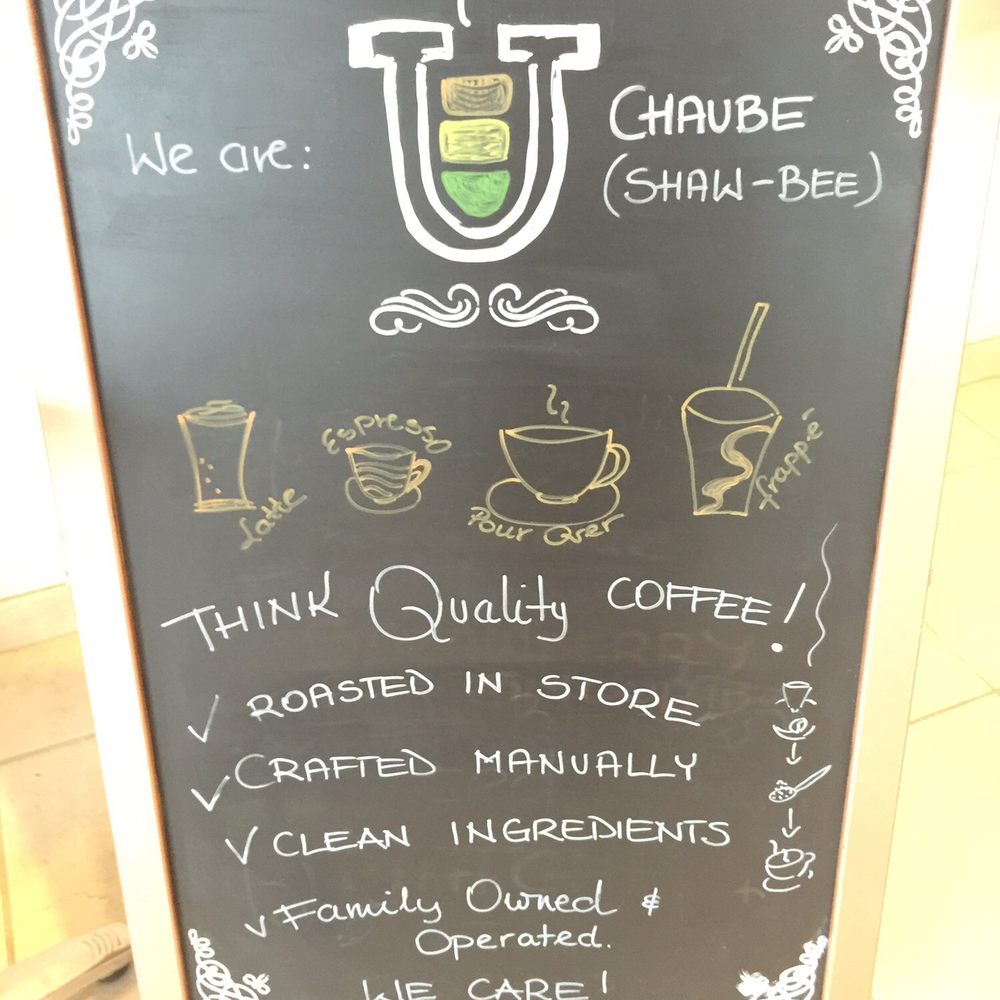 We are:
CHAUBE
(SHAW-BEE)
Latte
Espresso
Pour Over
frappé
THINK Quality COFFEE!
ROASTED IN STORE
CRAFTED MANUALLY
CLEAN INGREDIENTS
Family Owned &
Operated.
WE CARE!